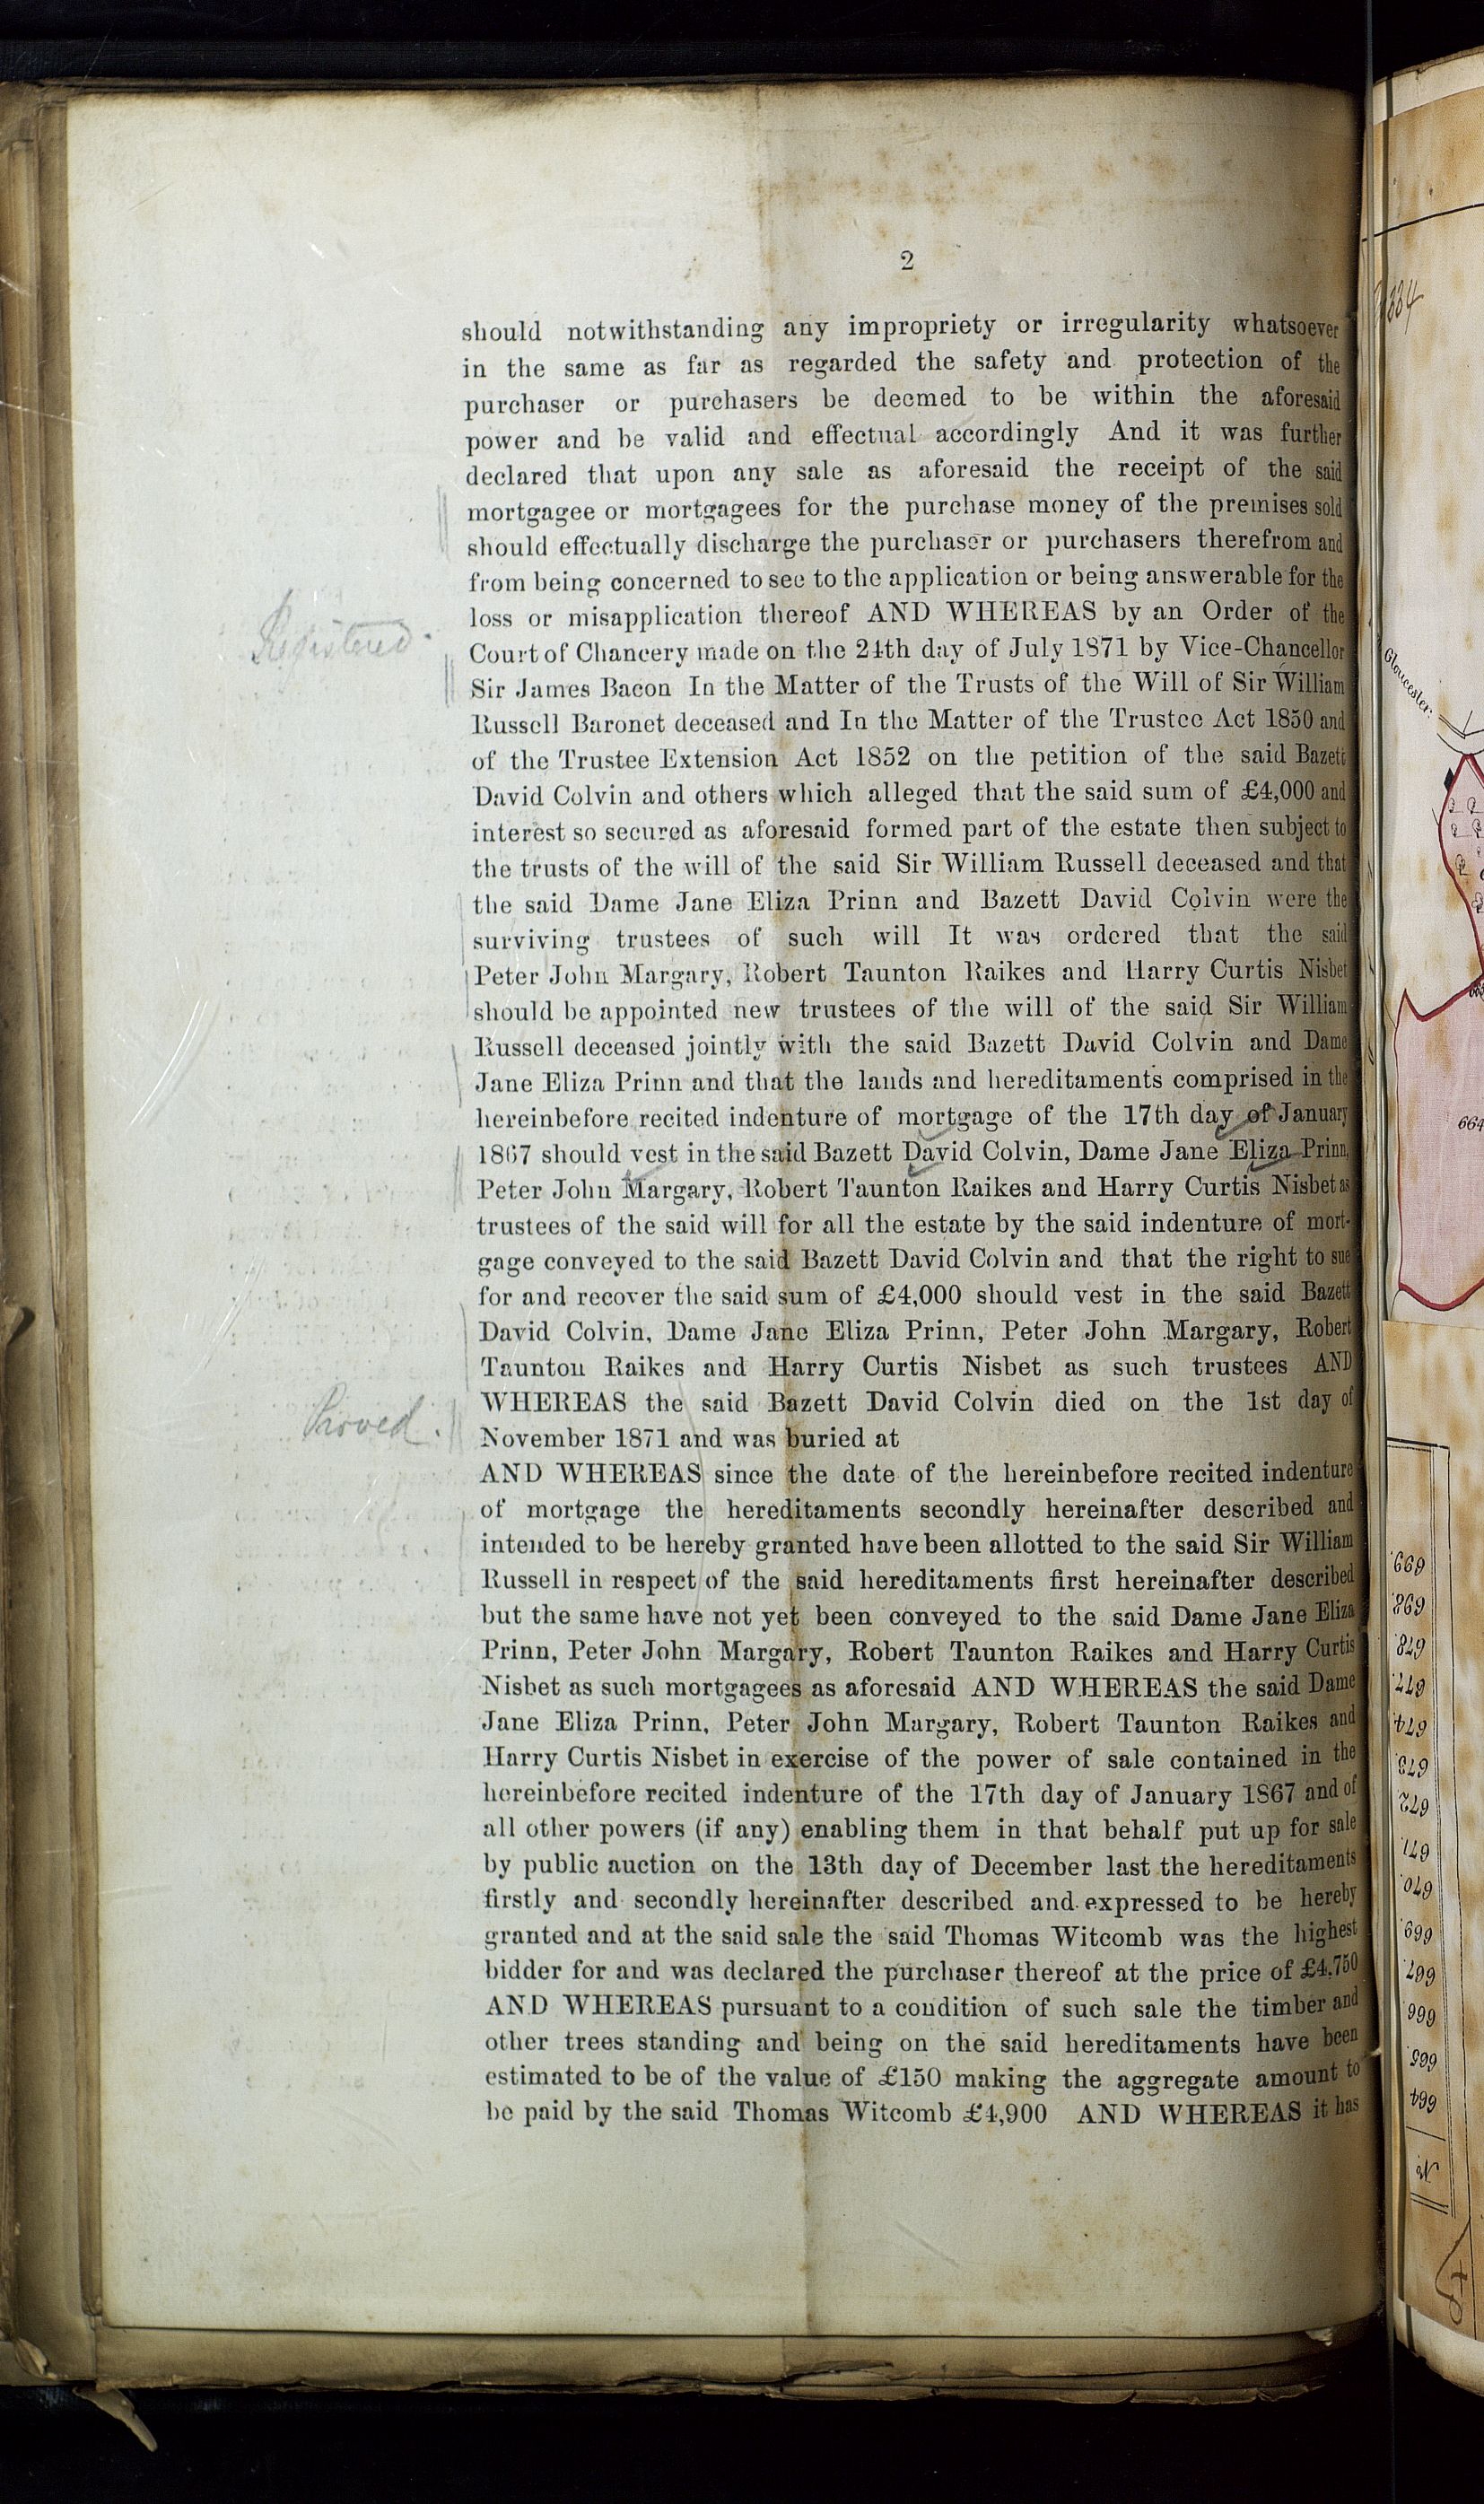 2
should notwithstanding any impropriety or irregularity whatsoever
in the same as far as regarded the safety and protection of the
purchaser or purchasers be deemed to be within the aforesaid
power and be valid and effectual accordingly And it was further
declared that upon any sale as aforesaid the receipt of the said
mortgagee or mortgagees for the purchase money of the premises sold
should effectually discharge the purchaser or purchasers therefrom and
from being concerned to see to the application or being answerable for the
loss or misapplication thereof AND WHEREAS by an Order of the
Registered.
Court of Chancery made on the 24th day of July 1871 by Vice-Chancellor
Sir James Bacon In the Matter of the Trusts of the Will of Sir William
Russell Baronet deceased and In the Matter of the Trustee Act 1850 and
of the Trustee Extension Act 1852 on the petition of the said Bazett
David Colvin and others which alleged that the said sum of £4,000 and
interest so secured as aforesaid formed part of the estate then subject to
the trusts of the will of the said Sir William Russell deceased and that
the said Dame Jane Eliza Prinn and Bazett David Colvin were the
surviving trustees of such will It was ordered that the said
Peter John Margary, Robert Taunton Raikes and Harry Curtis Nisbet
should be appointed new trustees of the will of the said Sir William
Russell deceased jointly with the said Bazett David Colvin and Dame
Jane Eliza Prinn and that the lands and hereditaments comprised in the
hereinbefore recited indenture of mortgage of the 17th day of January
1867 should vest in the said Bazett David Colvin, Dame Jane Eliza Prinn,
Peter John Margary, Robert Taunton Raikes and Harry Curtis Nisbet as
trustees of the said will for all the estate by the said indenture of mort-
gage conveyed to the said Bazett David Colvin and that the right to sue
for and recover the said sum of £4,000 should vest in the said Bazett
David Colvin, Dame Jane Eliza Prinn, Peter John Margary, Robert
Taunton Raikes and Harry Curtis Nisbet as such trustees AND
WHEREAS the said Bazett David Colvin died on the 1st day of
Proved.
November 1871 and was buried at
AND WHEREAS since the date of the hereinbefore recited indenture
of mortgage the hereditaments secondly hereinafter described and
intended to be hereby granted have been allotted to the said Sir William
Russell in respect of the said hereditaments first hereinafter described
but the same have not yet been conveyed to the said Dame Jane Eliza
Prinn, Peter John Margary, Robert Taunton Raikes and Harry Curtis
Nisbet as such mortgagees as aforesaid AND WHEREAS the said Dame
Jane Eliza Prinn, Peter John Margary, Robert Taunton Raikes and
Harry Curtis Nisbet in exercise of the power of sale contained in the
hereinbefore recited indenture of the 17th day of January 1867 and of
all other powers (if any) enabling them in that behalf put up for sale
by public auction on the 13th day of December last the hereditaments
firstly and secondly hereinafter described and expressed to be hereby
granted and at the said sale the said Thomas Witcomb was the highest
bidder for and was declared the purchaser thereof at the price of £4,750
AND WHEREAS pursuant to a condition of such sale the timber and
other trees standing and being on the said hereditaments have been
estimated to be of the value of £150 making the aggregate amount to
be paid by the said Thomas Witcomb £4,900 AND WHEREAS it has
334
Gloucester
664
664
665
666
667
669
670
671
672
673
674
677
678